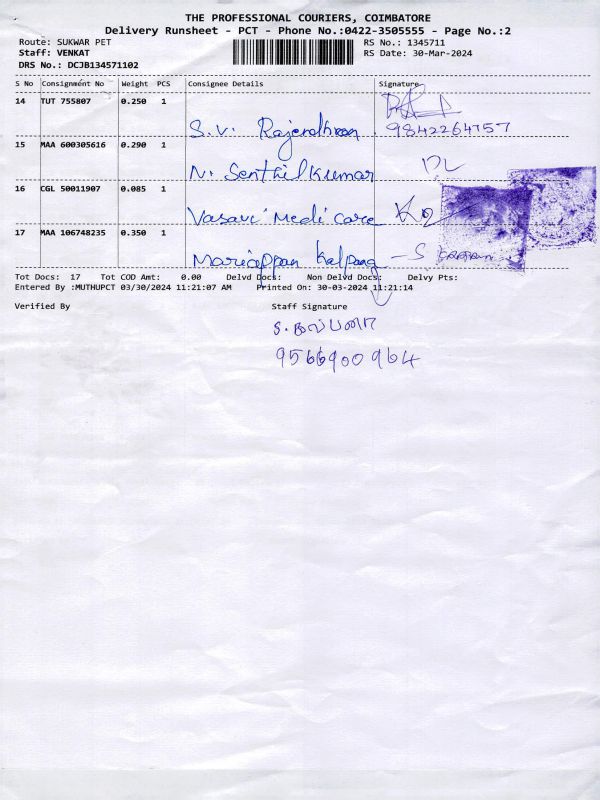 THE PROFESSIONAL COURIERS, COIMBATORE
Delivery Runsheet - PCT - Phone No.:0422-3505555 - Page No.:2
Route: SUKWAR PET RS No.: 1345711
Staff: VENKAT RS Date: 30-Mar-2024
DRS No.: DCJB134571102
S No Consignment No Weight PCS Consignee Details Signature
14 TUT 755807 0.250 1
S.V. Rajendhran 9842264757
15 MAA 600305616 0.290 1
N. Senthil Kumar
16 CGL 50011907 0.085 1
Vasavi Medi Care
17 MAA 106748235 0.350 1
Mariappan Kalpana
Tot Docs: 17 Tot COD Amt: 0.00 Delvd Docs: Non Delvd Docs: Delvy Pts:
Entered By :MUTHUPCT 03/30/2024 11:21:07 AM Printed On: 30-03-2024 11:21:14
Verified By Staff Signature
S. கல்பனா
9566900964